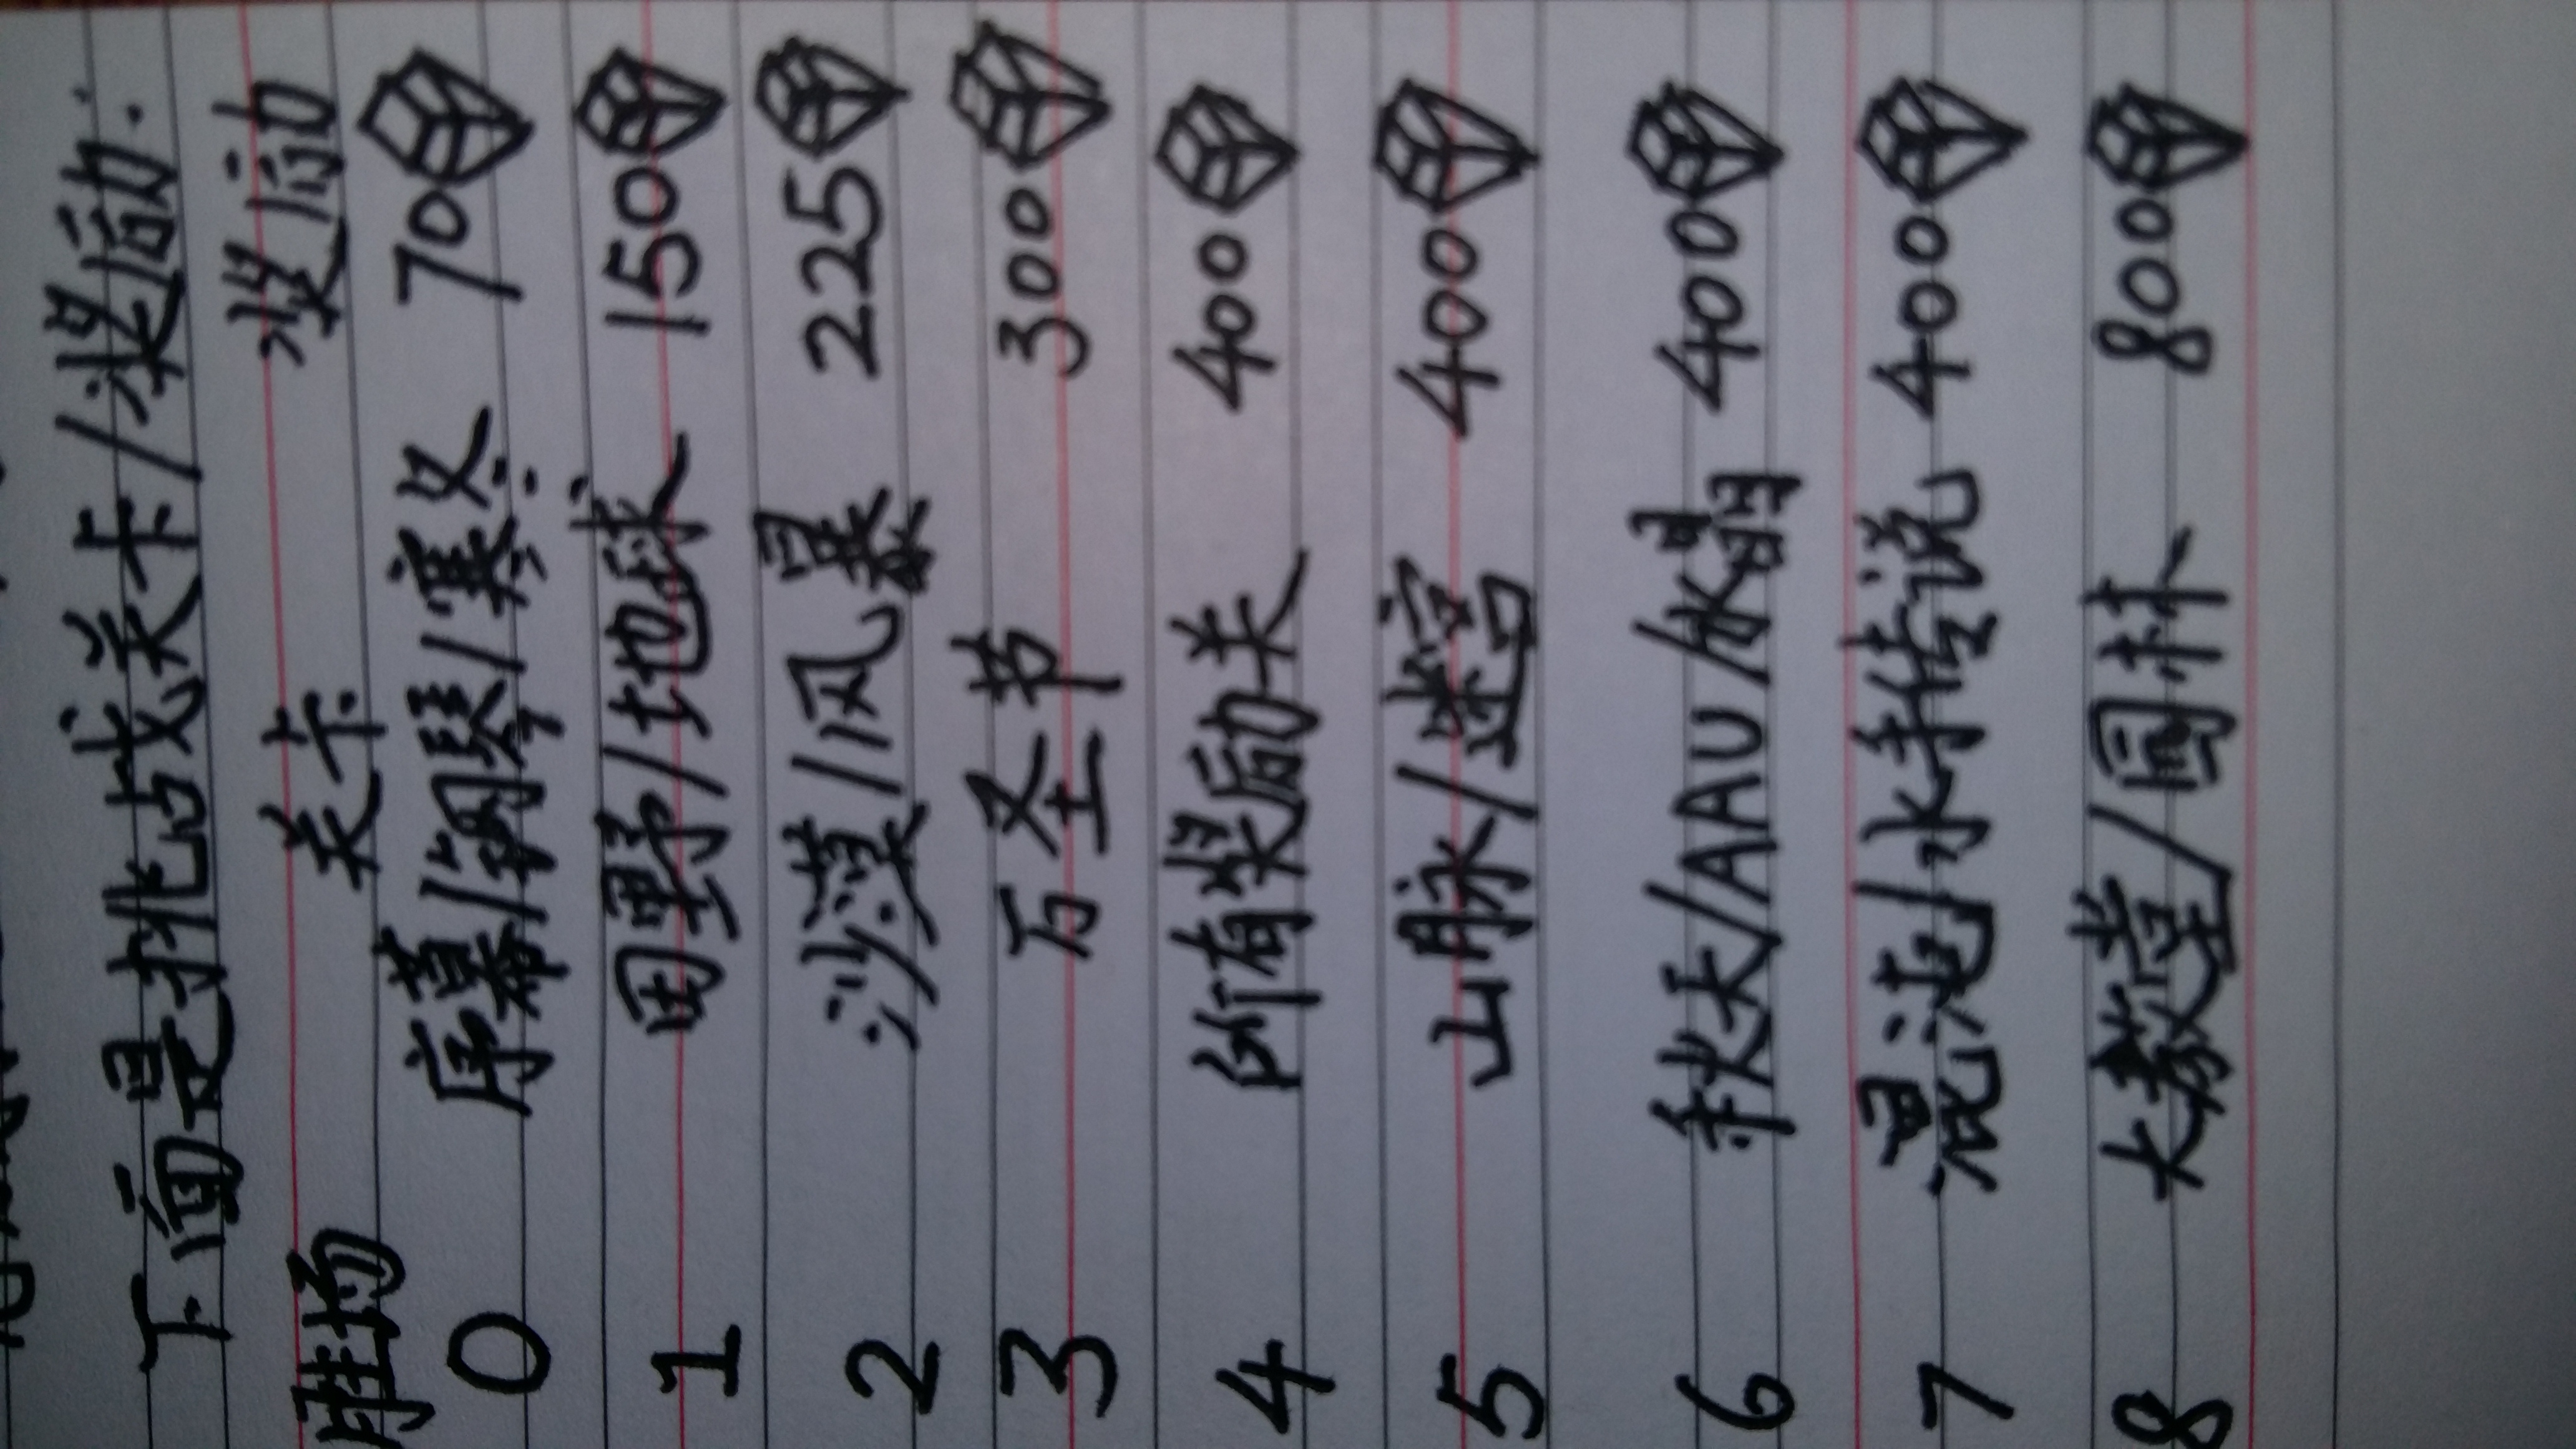 下面是挑战关卡/奖励:
胜场 关卡 奖励
0 序幕/钢琴/寒冬 70
1 田野/地球 150
2 沙漠/风暴 225
3 万圣节 300
4 所有奖励关 400
5 山脉/迷宫 400
6 秋天/AAU/水晶 400
7 混沌/水手传说 400
8 大教堂/圆林 800